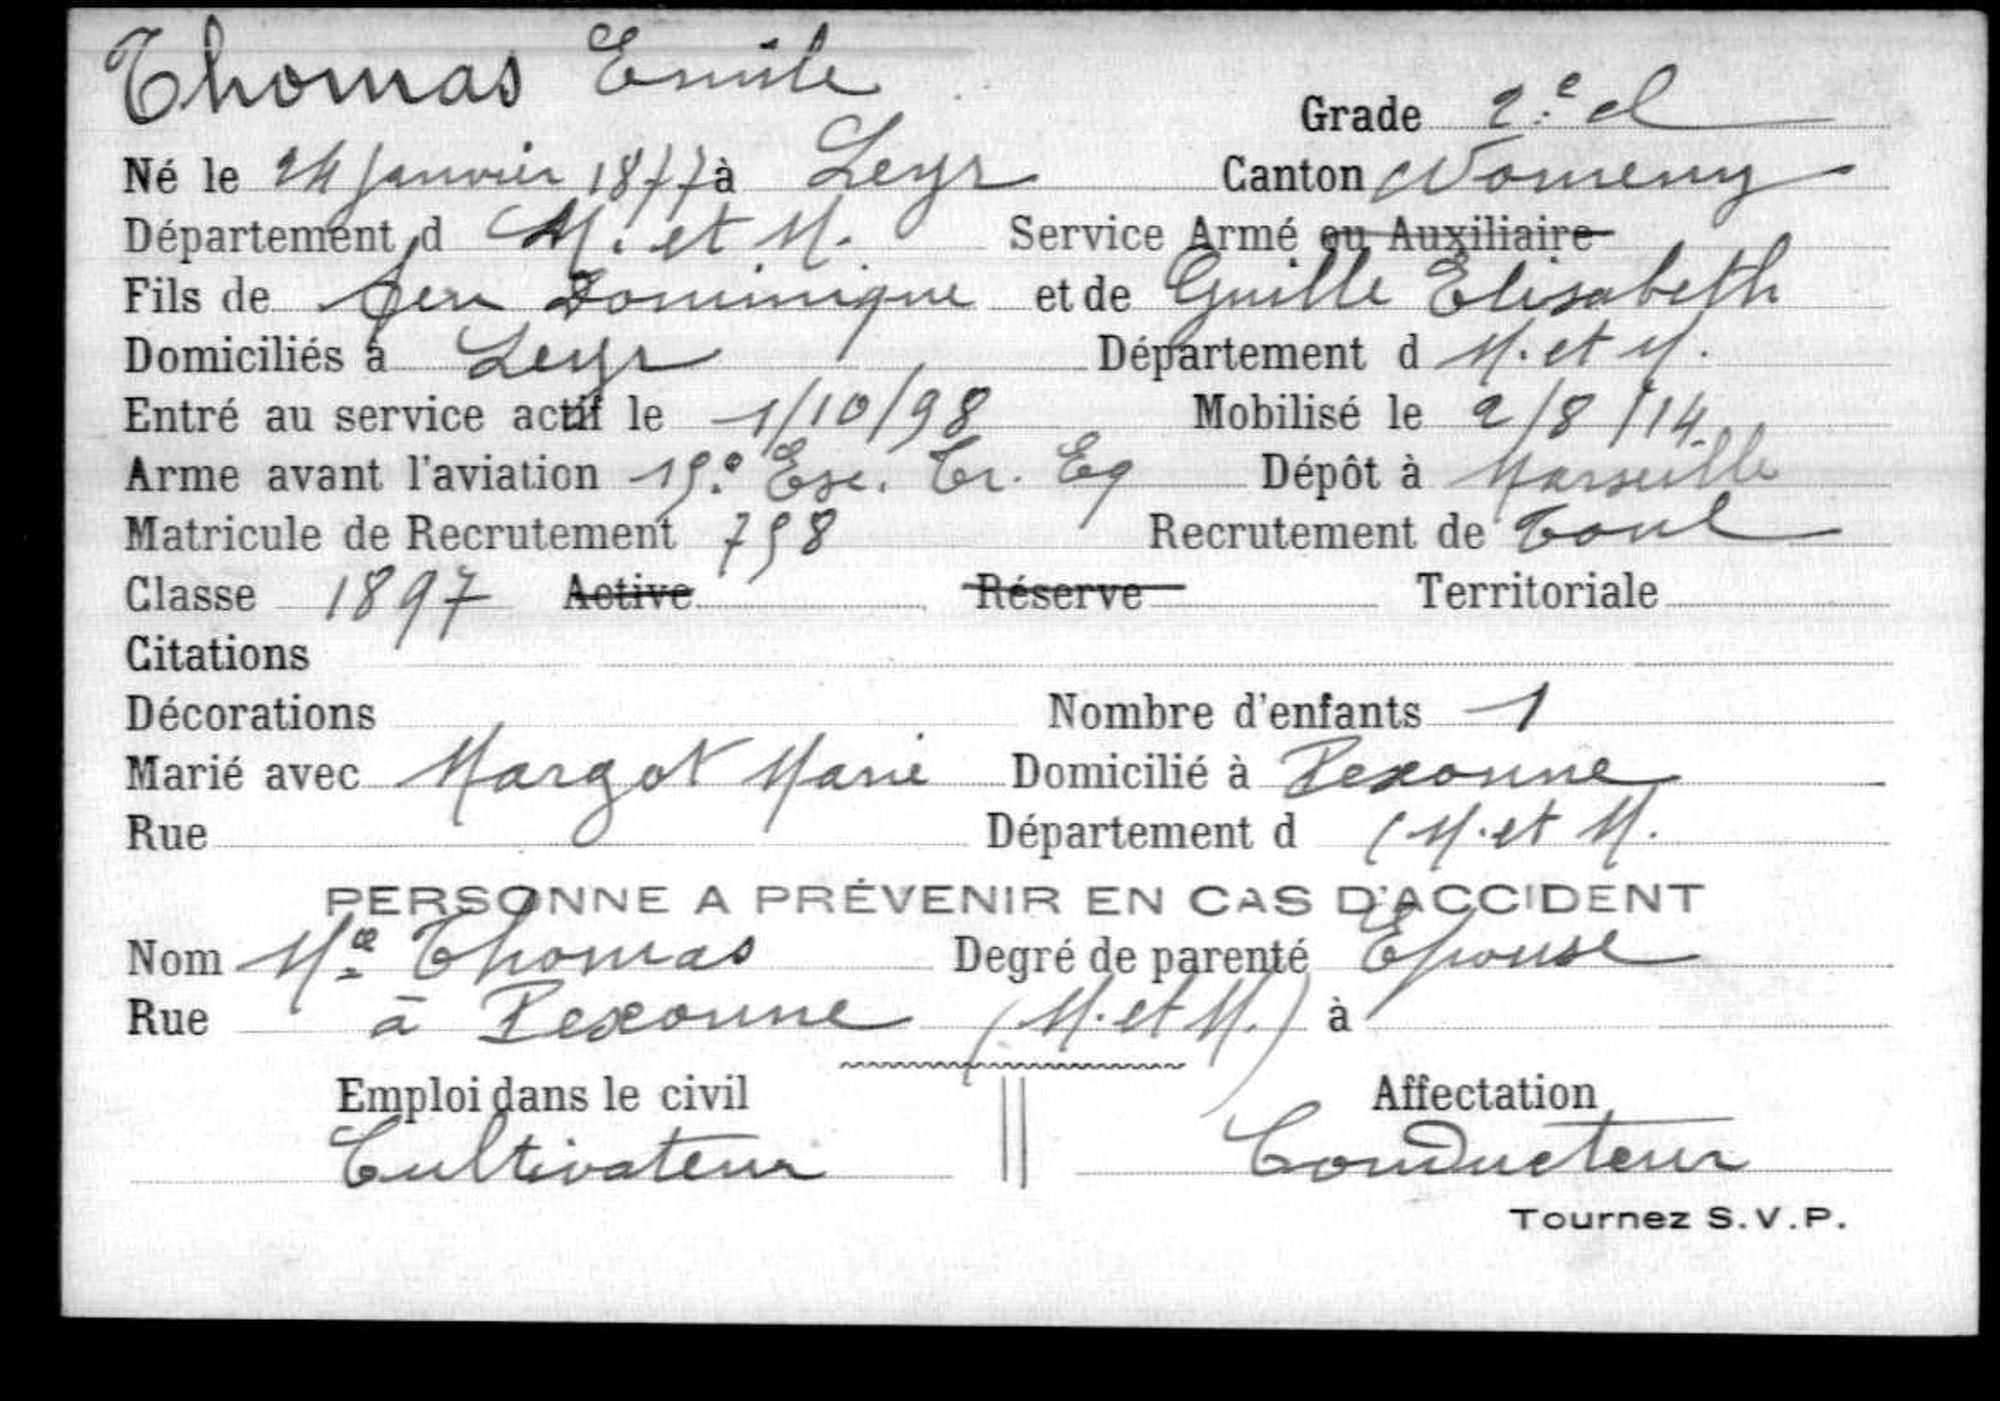 Thomas Emile
Grade 2.e cl
Né le 24 janvier 1877 à Leyr Canton Nomeny
Département d M. et M. Service Armé ou Auxiliaire
Fils de feu Dominique et de Guille Elisabeth
Domiciliés à Leyr Département d M. et M.
Entré au service actif le 1/10/98 Mobilisé le 2/8/14
Arme avant l'aviation 15.e Esc. Tr. Eq Dépôt à Marseille
Matricule de Recrutement 758 Recrutement de Toul
Classe 1897 Active Réserve Territoriale
Citations
Décorations Nombre d'enfants 1
Marié avec Margot Marie Domicilié à Pexonne
Rue Département d (M. et M.
PERSONNE A PRÉVENIR EN CAS D'ACCIDENT
Nom Thomas Degré de parenté Epouse
Rue à Pexonne (M. et M.) à
Emploi dans le civil Affectation
Cultivateur Conducteur
Tournez S.V.P.